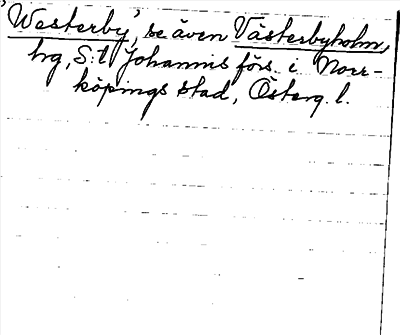 'Westerby', se även Västerbyholm,
hg, S:t Johannis förs. i Norr-
köpings stad, Österg. l.